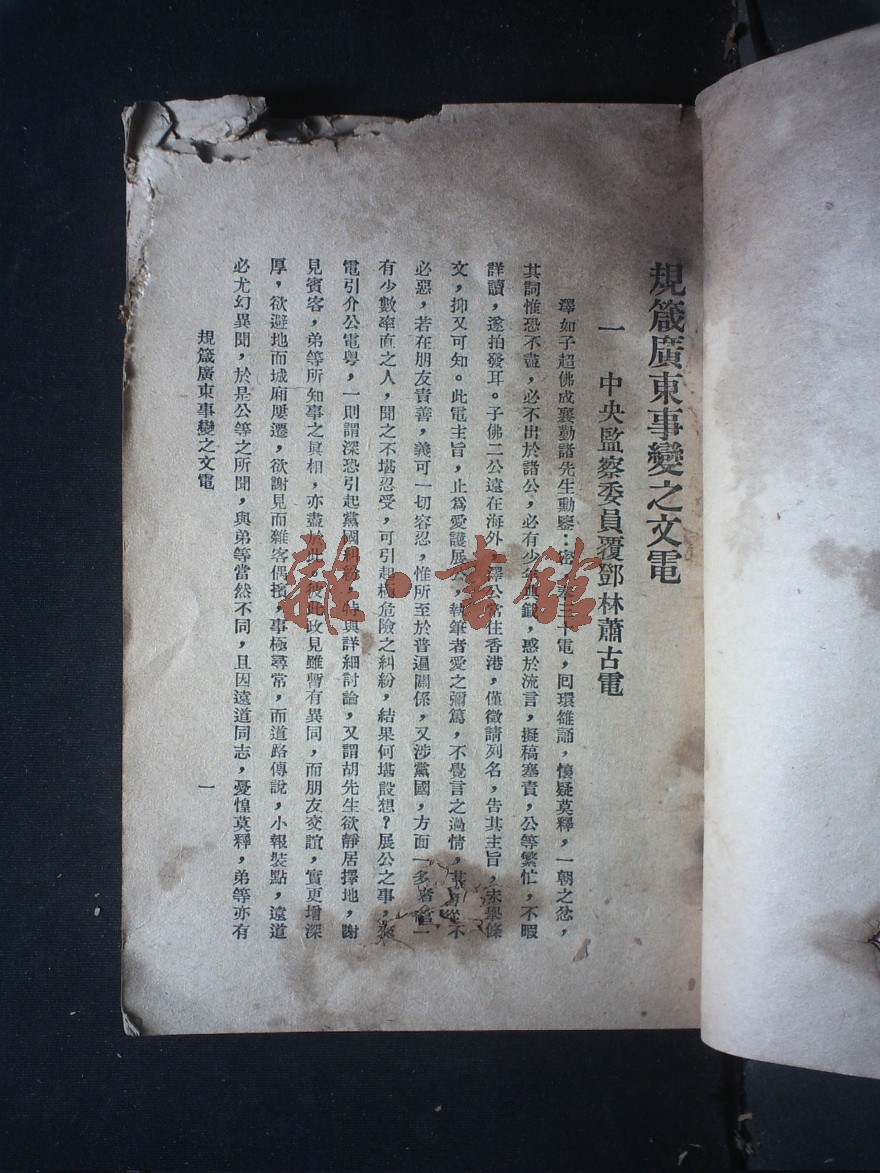 規箴廣東事變之文電
一 中央監察委員覆鄧林蕭古電
澤如子超佛成襄勤諸先生勳鑒：密 三十電，回環雒誦，懷疑莫釋，一朝之忿，
其詞惟恐不盡，必不出於諸公，必有少年 ，惑於流言，擬稿塞責，公等繁忙，不暇
詳讀，遂拍發耳。子佛二公遠在海外，澤公常住香港，僅徵請列名，告其主旨，未舉條
文，抑又可知。此電主旨，止爲愛護展公，執筆者愛之彌篤，不覺言之過情， 不
必惡，若在朋友責善，義可一切容忍，惟所至於普遍關係，又涉黨國，方面一多 一
有少數率直之人，聞之不堪忍受，可引起極危險之糾紛，結果何堪設想？展公之事，
電引介公電粵，一則謂深恐引起黨國糾紛，特與詳細討論，又謂胡先生欲靜居擇地，謝
見賓客，弟等所知事之眞相，亦盡於此。彼此政見雖暫有異同，而朋友交誼，實更增深
厚，欲避地而城廂屢遷，欲謝見而雜客偶擯，事極尋常，而道路傳說，小報裝點，遠道
必尤幻異聞，於是公等之所聞，與弟等當然不同，且因遠道同志，憂惶莫釋，弟等亦有
規箴廣東事變之文電
一
雜·書館